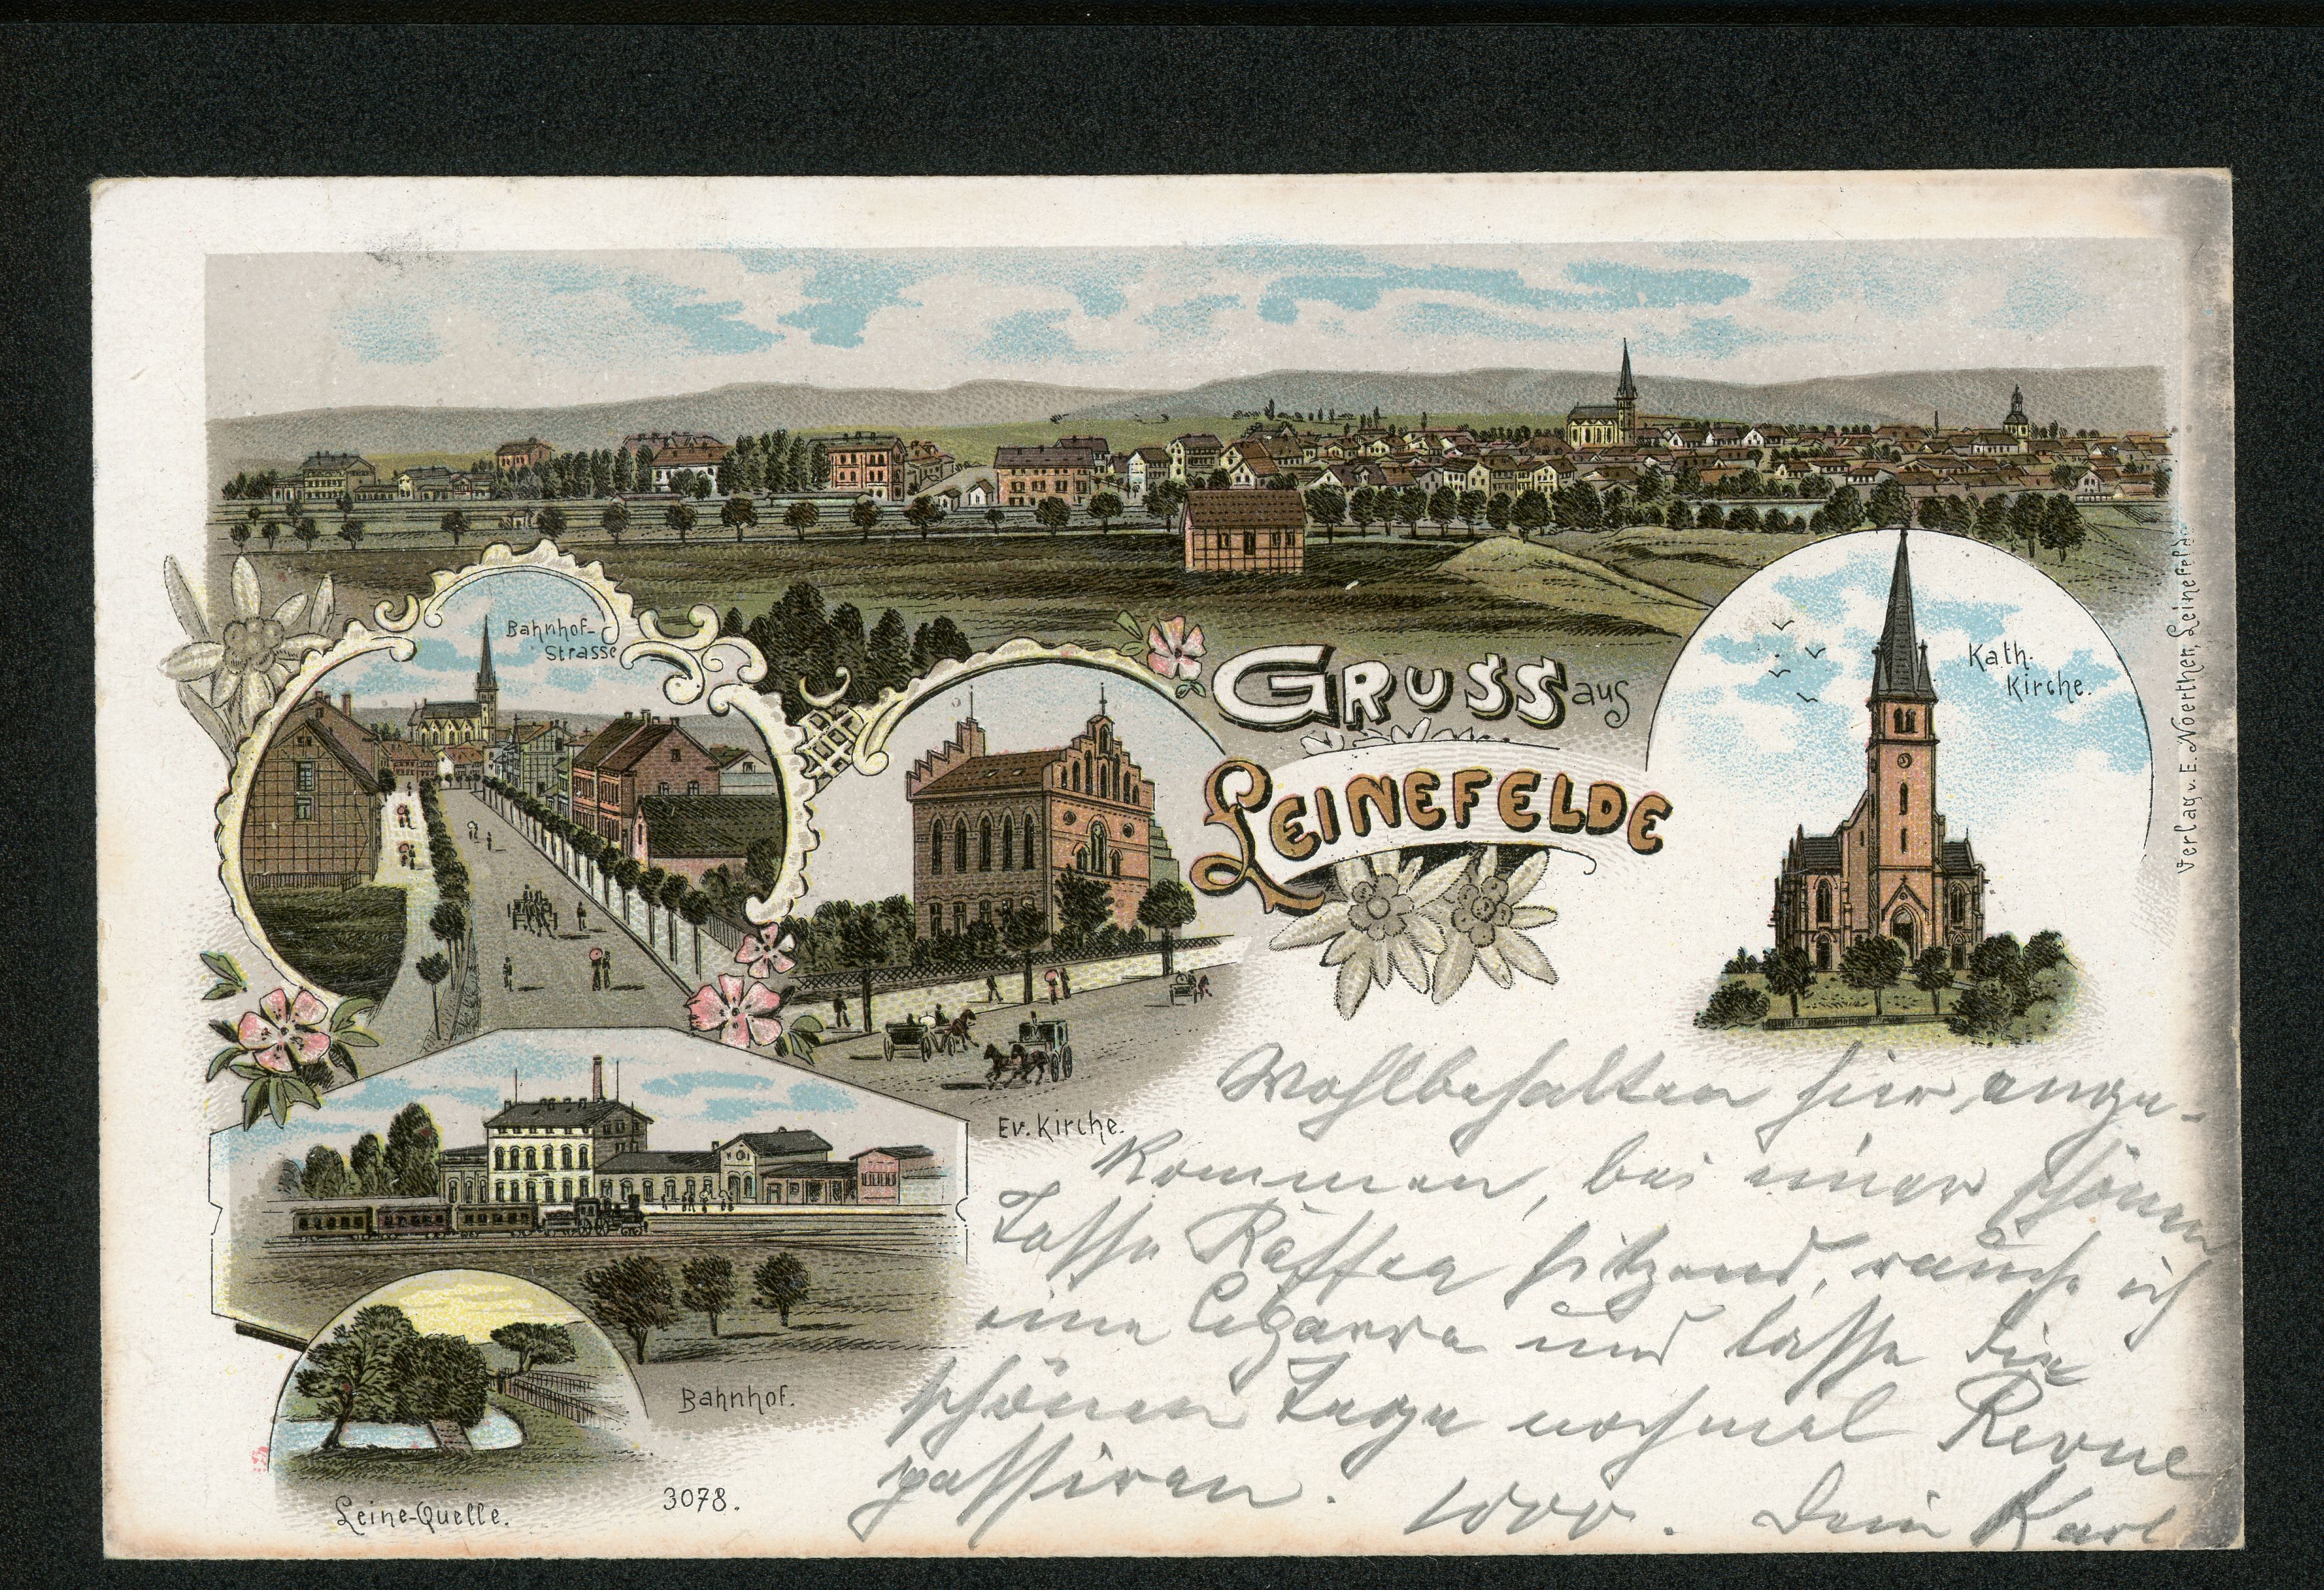 Bahnhof-
Strasse
GRUSS aus
LEINEFELDE
Kath.
Kirche.
Verlag v. E. Noerthen, Leinefelde.
Ev. Kirche.
Bahnhof.
Leine-Quelle.
3078.
Wohlbehalten hier ange-
kommen, bei einer schönen
Tasse Kaffee sitzend, rauche ich
eine Cigarre und lasse die
schönen Tage nochmal Revue
passiren.
Dein Karl